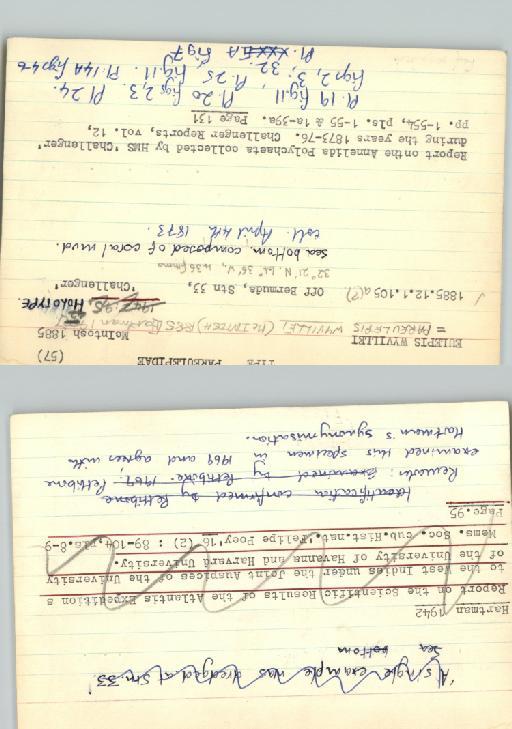 TYPE PAREULEPIDAE (57)
EULEPIS WYVILLEI McIntosh 1885
= PAREULEPIS WYVILLEI (McINTOSH) RES Hartman
HOLOTYPE.
1885.12.1.105a(?) Off Bermuda, Stn 33, 'Challenger'
32° 21' N. 64° 36' W, 435 fthms
sea bottom composed of coral mud.
coll. April 4th 1873.
Report onthe Annelida Polychaeta collected by HMS 'Challenger'
during the years 1873-76. Challenger Reports, vol. 12,
pp. 1-554, pls. 1-55 & 1a-39a. Page 131
Pl. 19 fig. 11, Pl. 20 figs 2,3. Pl 24.
figs 2, 3; Pl. 25 fig. 11. Pl. 14A figs 4-6
Pl. 32. fig 7
'A single example was dredged at Stn 33'
sea bottom
Hartman 1942
Report on the Scientific Results of the Atlantis Expedition s
to the West Indies under the Joint Auspices of the University
of the University of Havanna and Harvard University.
Mems. Soc. cub.Hist.nat."Felipe Poey"16 (2) : 89-104,pls.8-9
Page.95
Identification confirmed by Pettibone
Reworder: Examined by Pettibone, 1969. Pettibone
examined this specimen in 1969 and agrees with
Hartman's synonymisation.